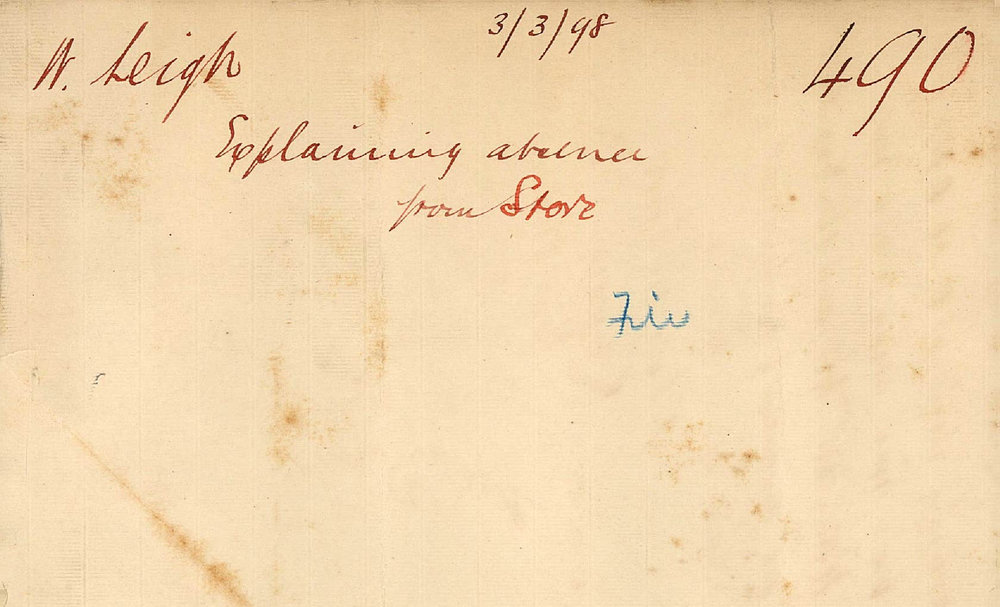 3/3/98
W. Leigh 490
Explaining absence
from Store